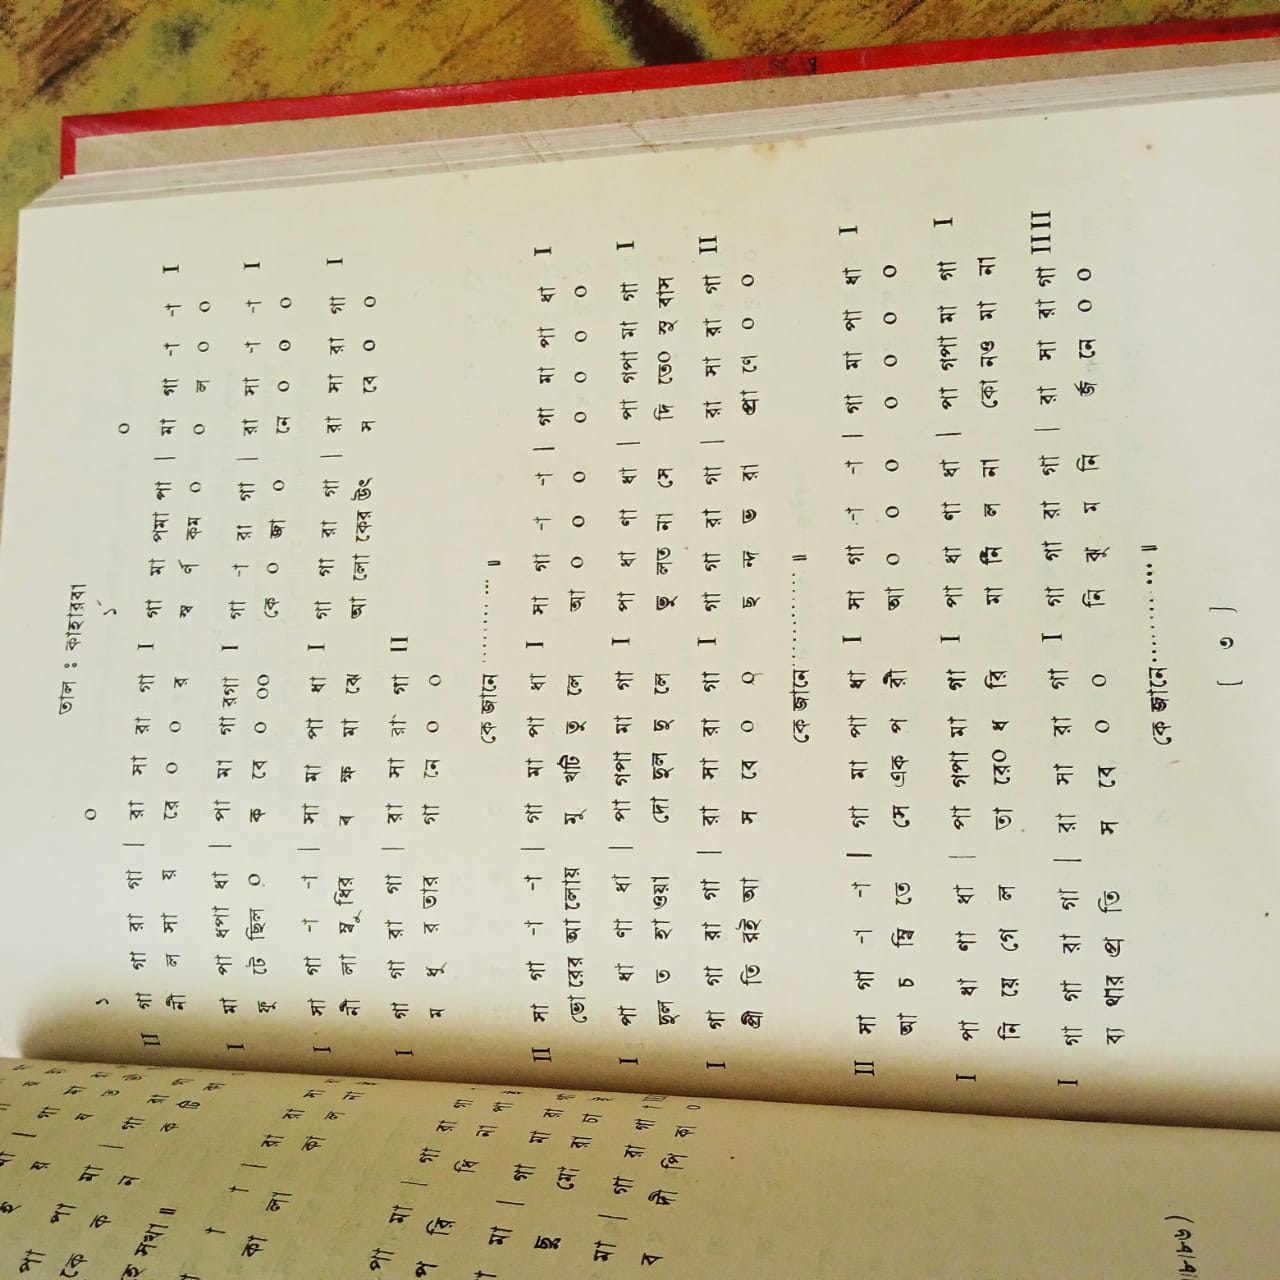 তাল : কাহারবা
১ ০ ১´ ০
II গা গা রা গা | রা সা রা গা I গা মা পমা পা | মা গা -া -া I
নী ল সা য় রে ০ ০ র স্ব র্ণ কম ০ ০ ল ০ ০
I মা পা ধপা ধা | পা মা গা রগা I গা -া রা গা | রা সা -া -া I
ফু টে ছিল ০ ক বে ০ ০০ কে ০ জা ০ নে ০ ০ ০
I সা গা -া -া | সা মা পা ধা I গা গা রা গা | রা সা রা গা I
নী লা ম্বু ধির ব ক্ষ মা ঝে আ লো কের উৎ স বে ০ ০
I গা গা রা গা | রা সা রা গা II
ম ধু র তার গা নে ০ ০
কে জানে ........... ॥
II সা গা -া -া | গা মা পা ধা I সা গা -া -া | গা মা পা ধা I
ভো রের আ লোয় মু খটি তু লে আ ০ ০ ০ ০ ০ ০ ০
I পা ধা ণা ধা | পা গপা মা গা I পা ধা ণা ধা | পা গপা মা গা I
দুল ত হা ওয়া দো দুল দু লে ভু লত না সে দি তে০ সু বাস
I গা গা রা গা | রা সা রা গা I গা গা রা গা | রা সা রা গা II
প্রী তি রই আ স বে ০ ০ ছ ন্দ ভ রা প্রা ণে ০ ০
কে জানে ............ ॥
II সা গা -া -া | গা মা পা ধা I সা গা -া -া | গা মা পা ধা I
আ চ ম্বি তে সে এক প রী আ ০ ০ ০ ০ ০ ০ ০
I পা ধা ণা ধা | পা গপা মা গা I পা ধা ণা ধা | পা গপা মা গা I
নি য়ে গে ল তা রে০ ধ রি মা নি ল না কো নও মা না
I গা গা রা গা | রা সা রা গা I গা গা রা গা | রা সা রা গা IIII
ব্য থার প্র তি স বে ০ ০ নি ঝু ম নি র্জ নে ০ ০
কে জানে ............ ॥
[ ৩ ]